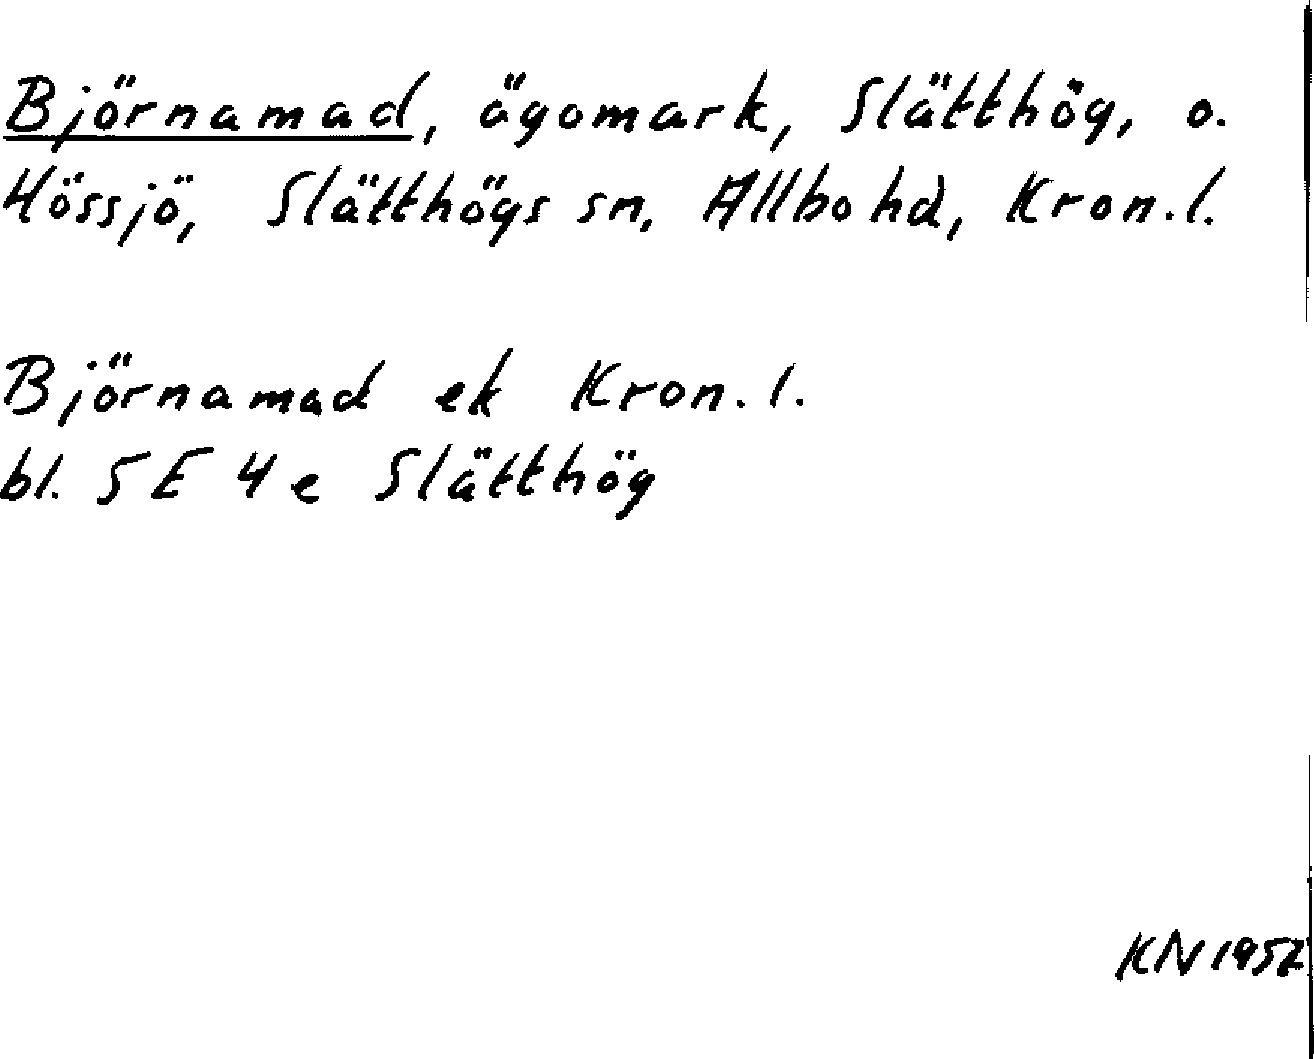 Björnamad, ägomark, Slätthög, o.
Hössjö, Slätthögs sn, Allbo hd, Kron.l.
Björnamad ek Kron.l.
bl. 5E 4e Slätthög
KN 1952